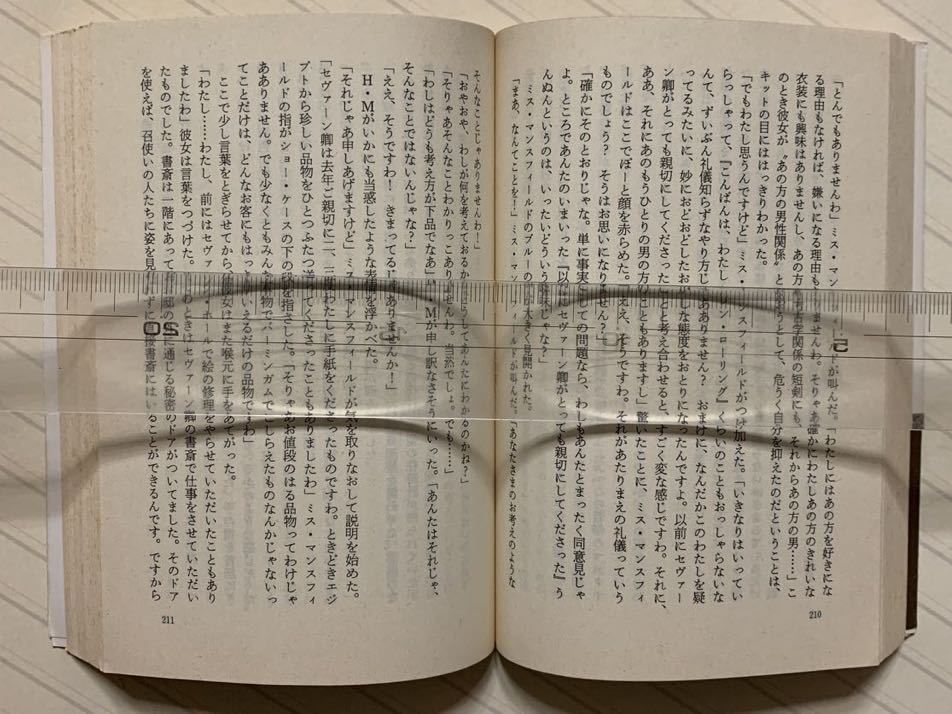 「とんでもありませんわ」ミス・マンスフィールドが叫んだ。「わたしにはあの方を好きにな
る理由もなければ、嫌いになる理由もありませんわ。そりゃあ確かにわたしあの方のきれいな
衣装にも興味はありませんし、あの方の考古学関係の短剣にも、それからあの方の男……」こ
のとき彼女が〝あの方の男性関係〟と
ようとして、危うく自分を抑えたのだということは、
キットの目にははっきりわかった。
「でもわたし思うんですけど」ミス・マンスフィールドがつけ加えた。「いきなりはいってい
らっしゃって、『こんばんは、わたし
ン・ローリング』くらいのこともおっしゃらないな
んて、ずいぶん礼儀知らずなやり方じゃありません? おまけに、なんだかこのわたしを疑
ってるみたいに、妙におどおどしたおかしな態度をおとりになったんですよ。以前にセヴァー
ン卿がとっても親切にしてくださったことと考え合わせると、すごく変な感じですわ。それに、
ああ、それにあのもうひとりの男の方のこともありますし」驚いたことに、ミス・マンスフィ
ールドはここでぽーと顔を赤らめた。「ええ、そうですわ。それがあたりまえの礼儀っていう
ものでしょう? そうはお思いになりません?」
「確かにそのとおりじゃな。単に事実としての問題なら、わしもあんたとまったく同意見じゃ
よ。ところであんたのいまいった『以前にセヴァーン卿がとっても親切にしてくださった』う
んぬんというのは、いったいどういう意味じゃな?」
ミス・マンスフィールドのブルーの
大きく見開かれた。
「まあ、なんてことを!」ミス・マンスフィールドが叫んだ。「あなたさまのお考えのような
210
そんなことじゃありませんわ!」
「おやおや、わしが何を考えておるか
どうしてあんたにわかるのかね?」
「そりゃあそんなことわかりっこありませんわ。当然でしょ。でも……」
「わしはどうも考え方が下品でなあ」H・Mが申し訳なさそうにいった。「あんたはそれじゃ、
そんなことではないんじゃな?」
「ええ、そうですわ! きまってるじゃありませんか!」
H・Mがいかにも当惑したような表情を浮かべた。
「それじゃあ申しあげますけど」ミス・マンスフィールドが気を取りなおして説明を始めた。
「セヴァーン卿は去年ご親切に二、三度わたしに手紙をくださったものですわ。ときどきエジ
プトから珍しい品物をひとつふたつ送ってくださったこともありましたわ」ミス・マンスフィ
ールドの指がショー・ケースの下の段を指さした。「そりゃあお値段のはる品物ってわけじゃ
ありません。でも少なくともみんな本物でバーミンガムでこしらえたものなんかじゃないっ
てことだけは、どんなお客にもはっきりいえるだけの品物ですわ」
ここで少し言葉をとぎらせてから、彼女はまた喉元に手をあてがった。
「わたし……わたし、前にはセヴァーン・ホールで絵の修理をやらせていただいたこともあり
ましたわ」彼女は言葉をつづけた。「そのときはセヴァーン卿の書斎で仕事をさせていただい
たものでした。書斎は一階にあって、
に通じる秘密のドアがついてました。そのドア
を使えば、召使いの人たちに姿を見られずに直接書斎にはいることができるんです。ですから
211